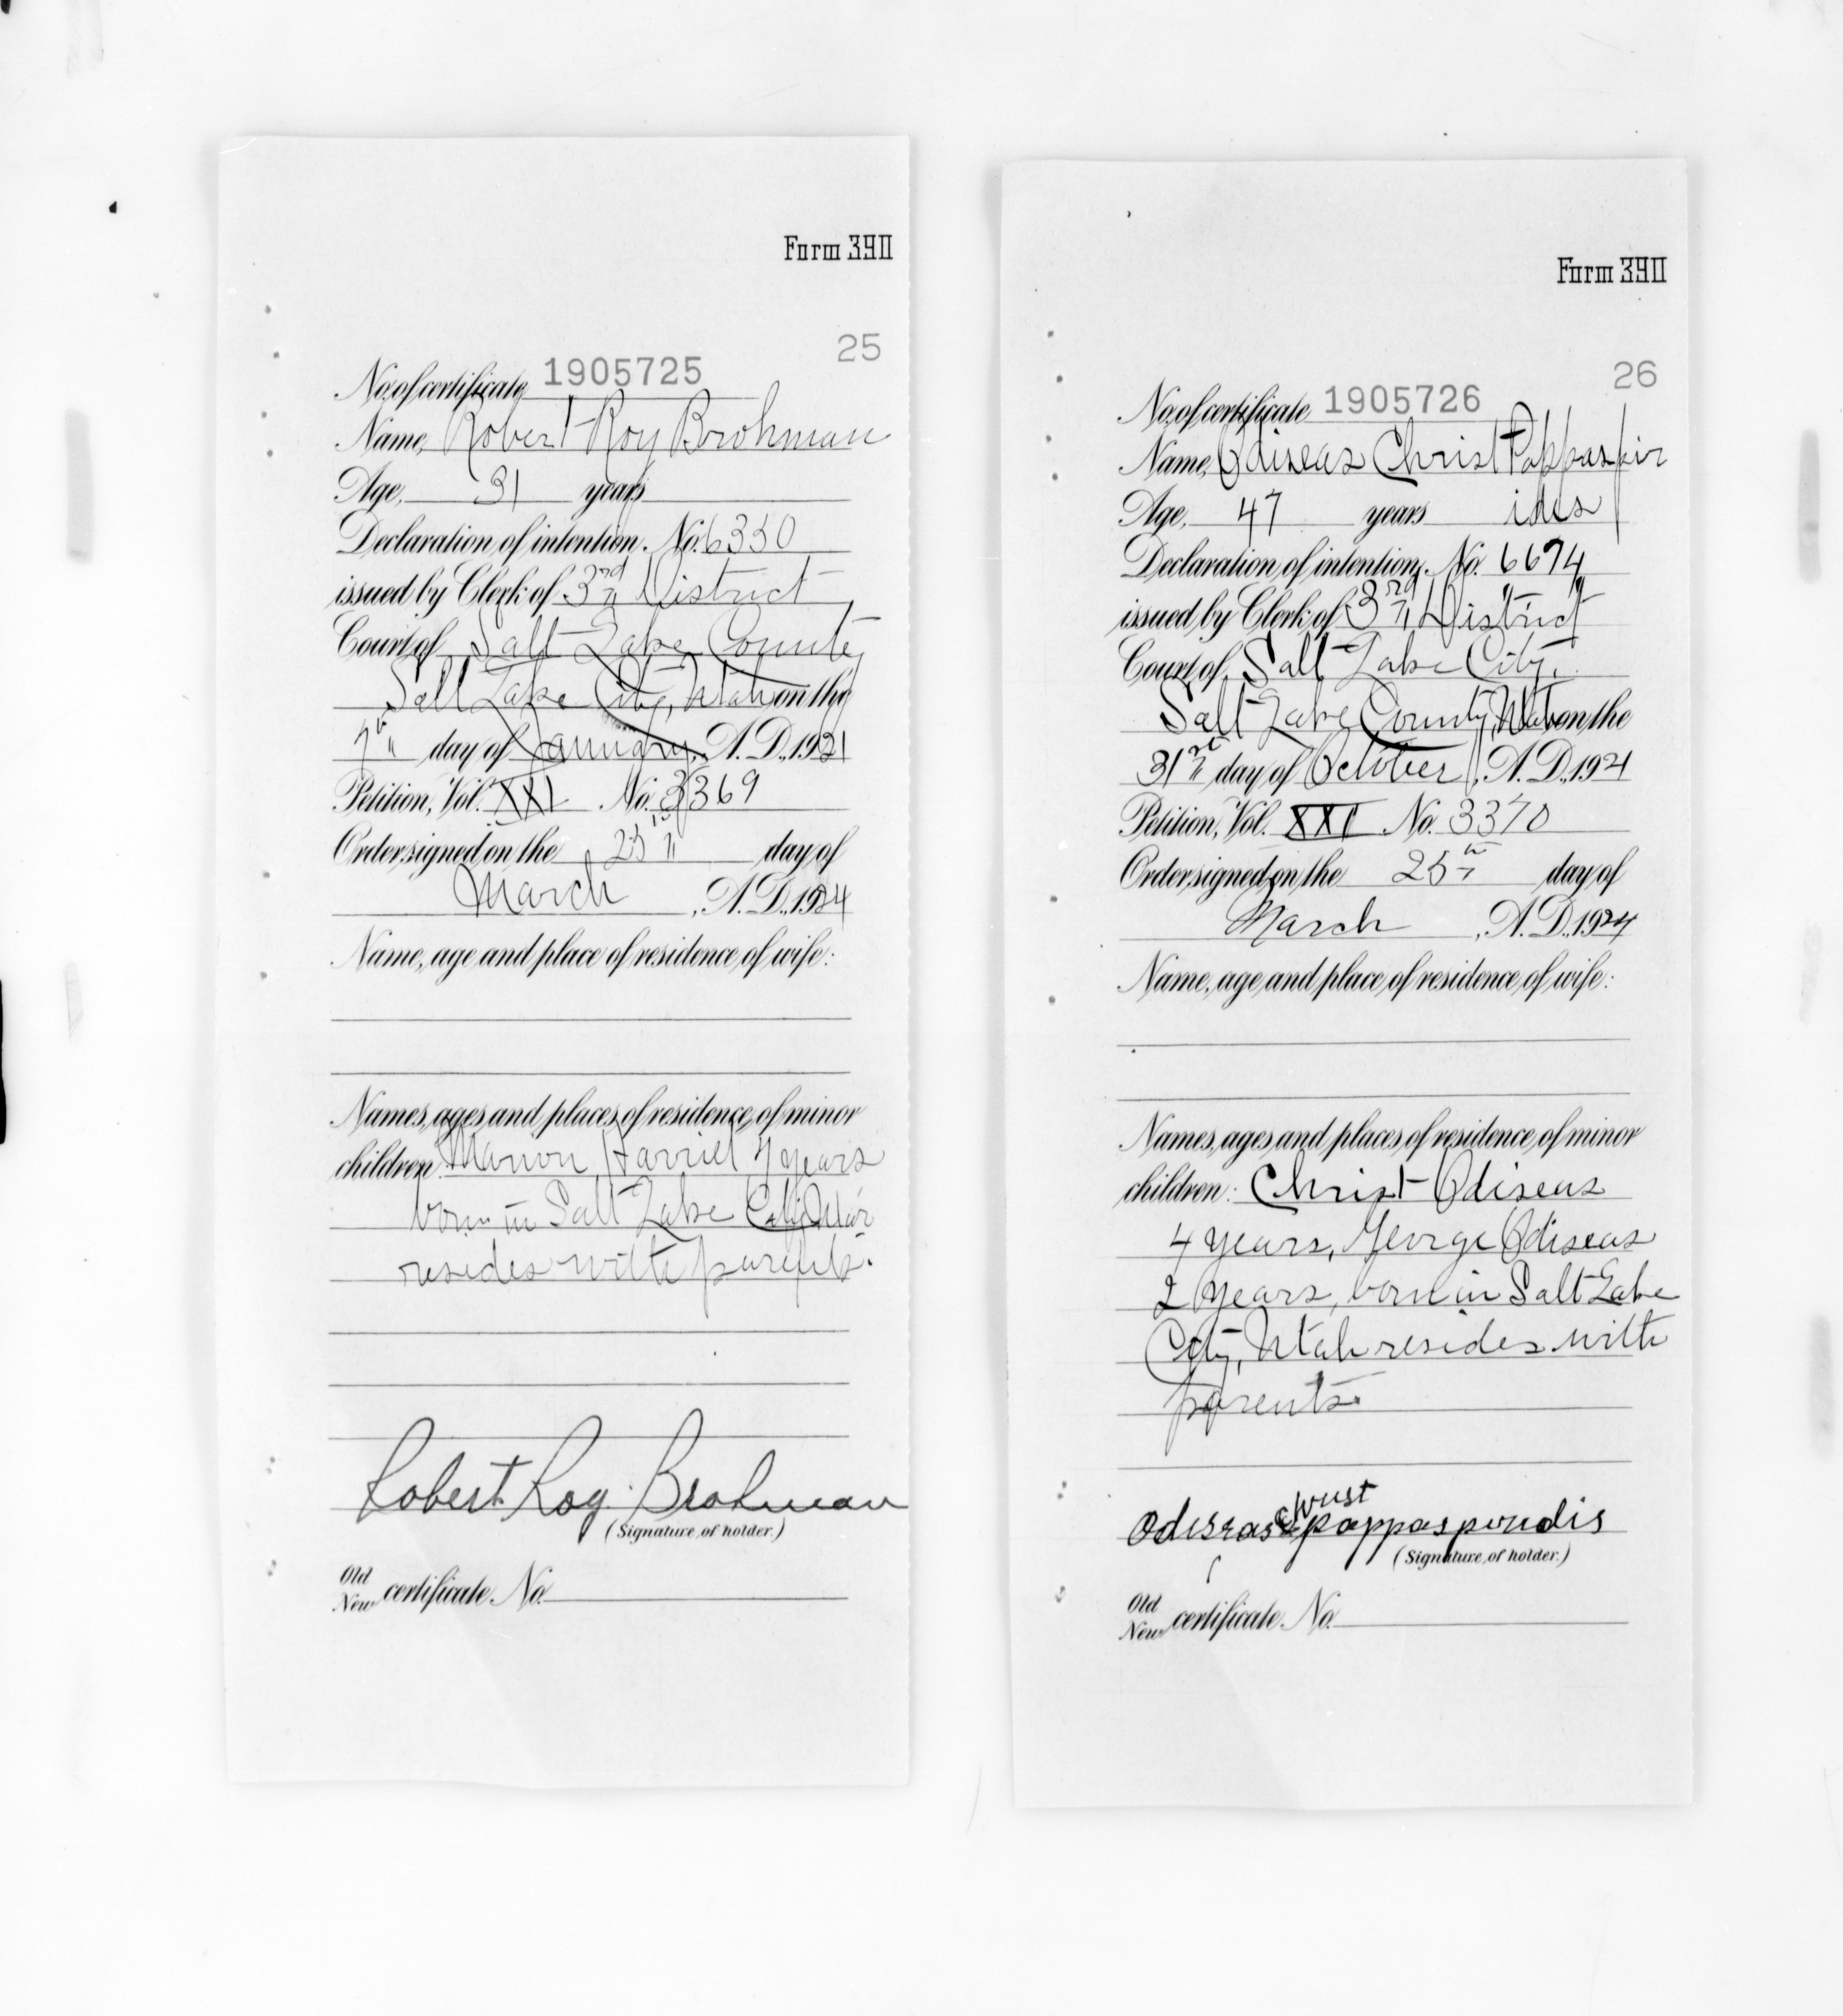 Form 390
25
No. of certificate 1905725
Name, Robert Roy Brohman
Age, 31 years
Declaration of intention, No. 6330
issued by Clerk of 3rd District
Court of Salt Lake County
Salt Lake City, Utah on the
7th day of January, A. D., 1921
Petition, Vol. XXI No. 3369
Order signed on the 25th day of
March, A. D., 1924
Name, age and place of residence of wife:
Names, ages and places of residence of minor
children: Marion Harriet 4 years
born in Salt Lake City
resides with parents.
Robert Roy Brohman
(Signature of holder.)
Old
New certificate No.
Form 390
26
No. of certificate 1905726
Name, Odiseas Christ Pappaspir
Age, 47 years ides
Declaration of intention, No. 6674
issued by Clerk of 3rd District
Court of Salt Lake City,
Salt Lake County, Utah on the
31st day of October, A. D., 1921
Petition, Vol. XXI No. 3370
Order signed on the 25th day of
March, A. D., 1924
Name, age and place of residence of wife:
Names, ages and places of residence of minor
children: Christ Odiseas
4 years, George Odiseas
2 years, born in Salt Lake
City, Utah resides with
parents.
Christ
(Signature of holder.)
Old
New certificate No.